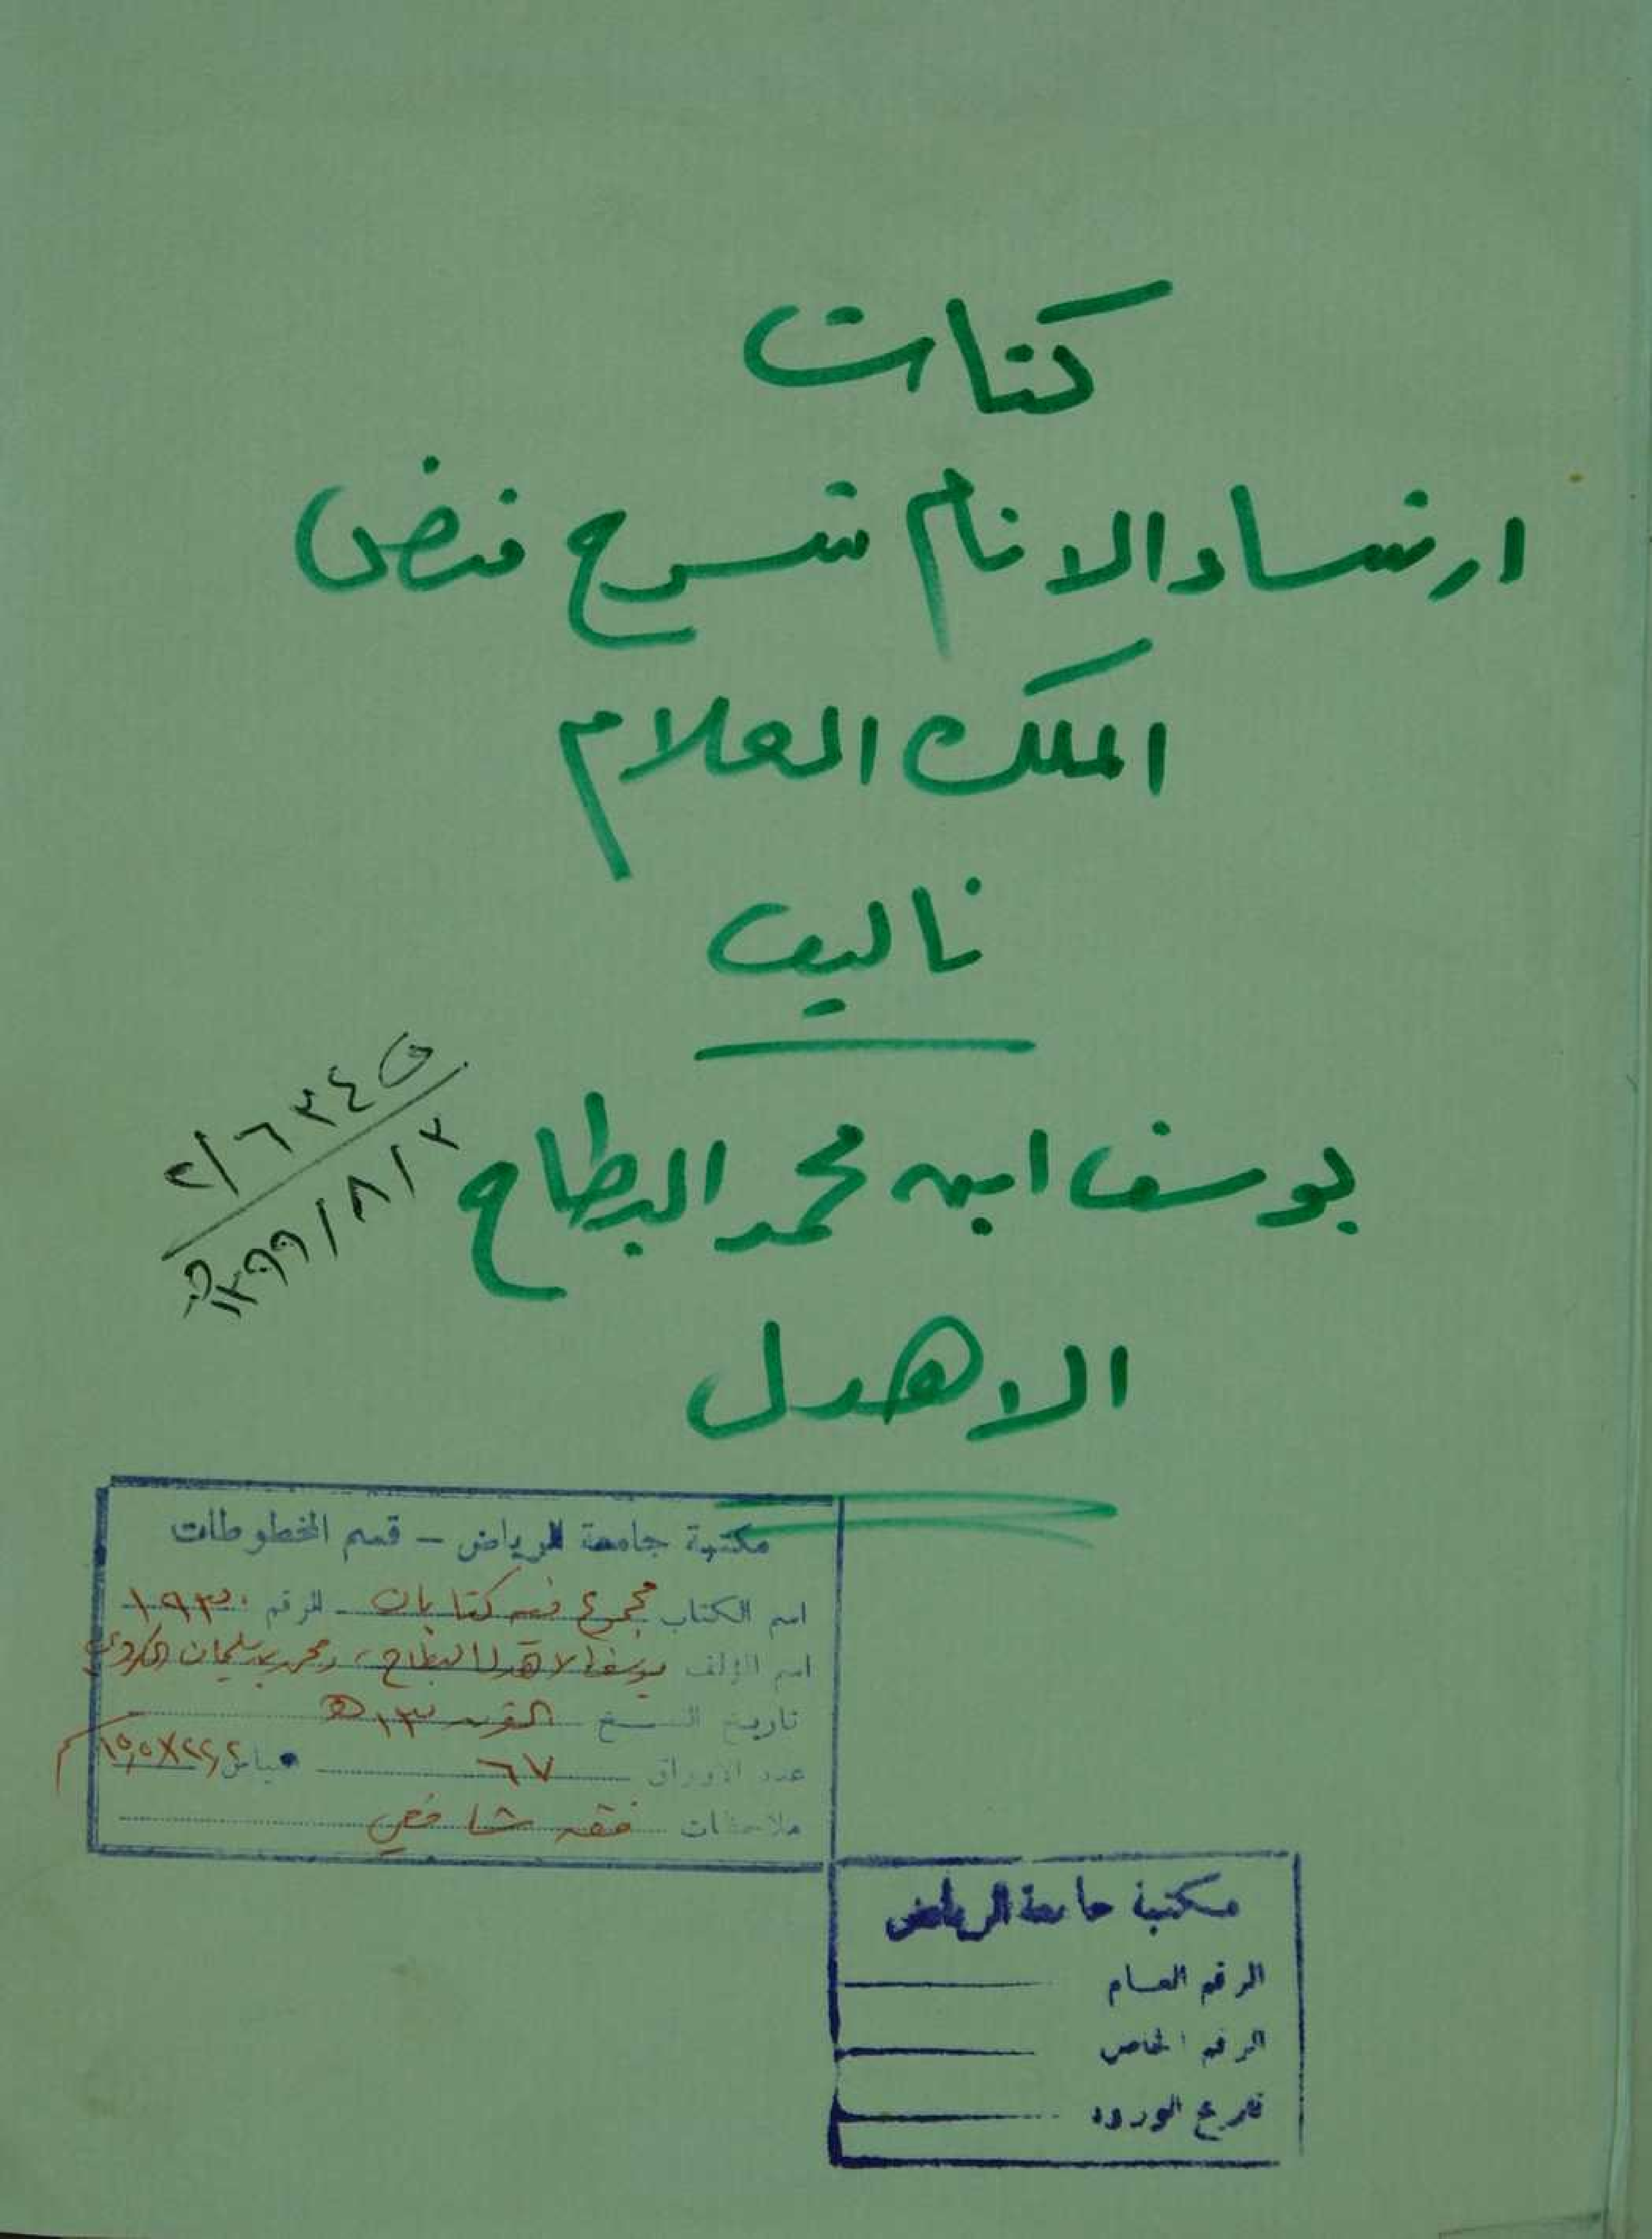 كتاب
ارشاد الانام شرح فيض
الملك العلام
تاليف
يوسف ابن محمد البطاح
الاهدل
ق ٦٣٤/٢
١٣٩٩/٨/٢ هـ
مكتبة جامعة الرياض - قسم المخطوطات
اسم الكتاب مجموع فيه كتابان الرقم ١٩٣٠
اسم المؤلف يوسف الاهدل البطاح، ومحمد بن سليمان الكردي
تاريخ النسخ القرن ١٣ هـ
عدد الاوراق ٦٧ قياس ٢٢٫٢×١٥٫٥ سم
ملاحظات فقه شافعي
مكتبة جامعة الرياض
الرقم العام
الرقم الخاص
تاريخ الورود